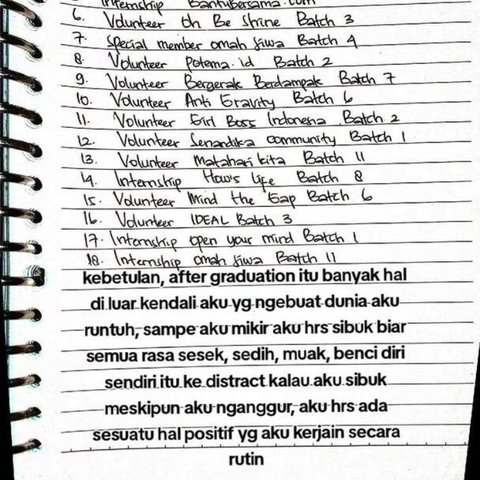 Internship Bantubersama.com
6. Volunteer Oh Be Shine Batch 3
7. Special member omah jiwa Batch 4
8. Volunteer Potema.id Batch 2
9. Volunteer Bergerak Berdampak Batch 7
10. Volunteer Anti Gravity Batch 6
11. Volunteer Girl Boss Indonesia Batch 2
12. Volunteer Senandika community Batch 1
13. Volunteer Matahari kita Batch 11
14. Internship How's Life Batch 8
15. Volunteer Mind the Gap Batch 6
16. Volunteer IDEAL Batch 3
17. Internship open your mind Batch 1
18. Internship omah jiwa Batch 11
kebetulan, after graduation itu banyak hal
di luar kendali aku yg ngebuat dunia aku
runtuh, sampe aku mikir aku hrs sibuk biar
semua rasa sesek, sedih, muak, benci diri
sendiri itu ke distract kalau aku sibuk
meskipun aku nganggur, aku hrs ada
sesuatu hal positif yg aku kerjain secara
rutin